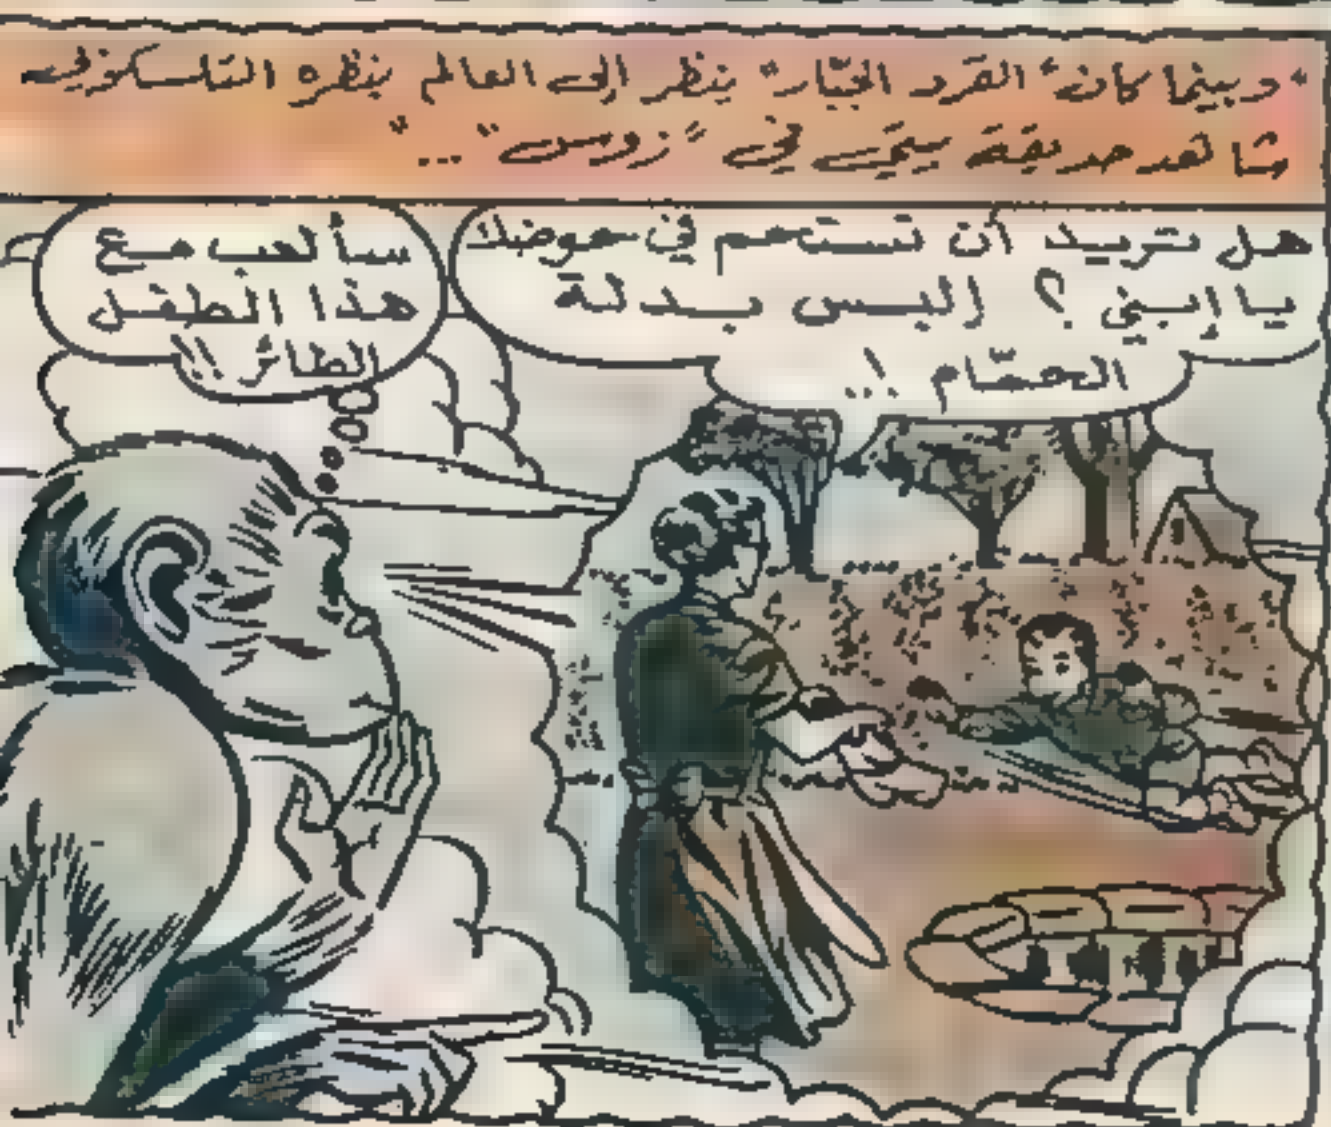 "وبينما كان "القرد الجبّار" ينظر إلى العالم بنظره التلسكوبي
شاهد حديقة بيتي في "زوس"...
هل تريد أن تستحم في حوضك
يا إبني؟ إلبس بدلة
الحمّام!..
سألعب مع
هذا الطفل
الطائر!!